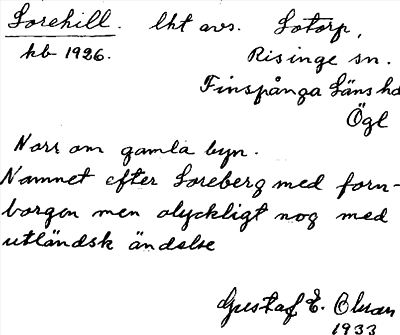 Lorehill. lht avs. Lotorp,
kb 1926. Risinge sn.
Finspånga Läns hd
Ögl
Norr om gamla byn.
Namnet efter Loreberg med forn-
borgen men olyckligt nog med
utländsk ändelse
Gustaf E. Olson
1933